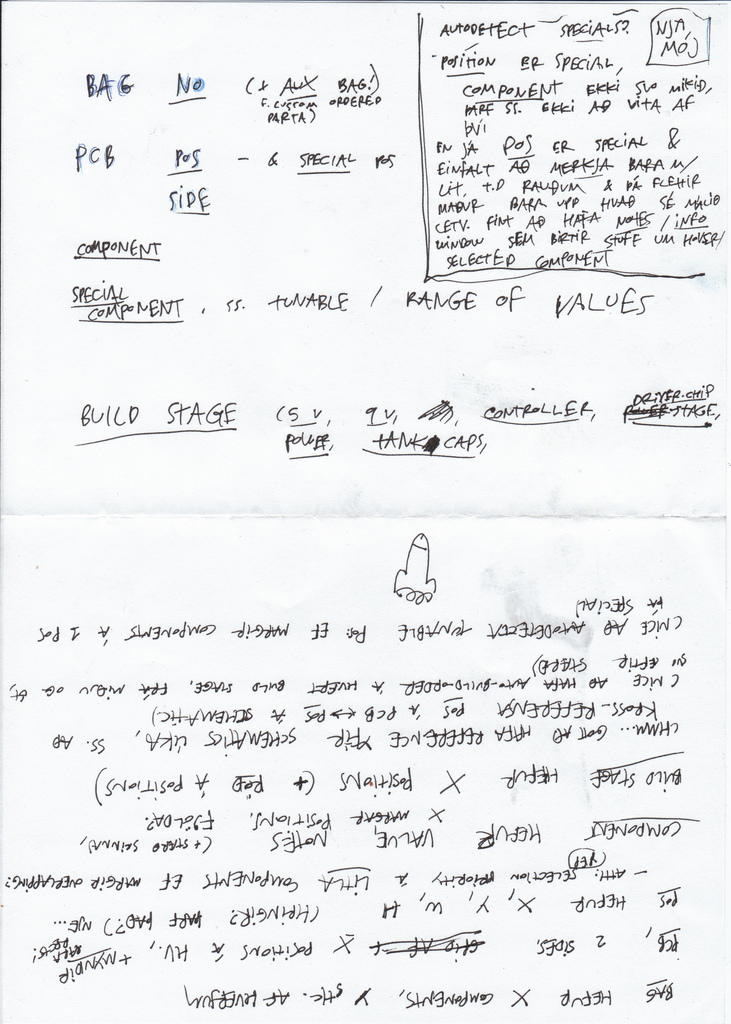 BAG NO (+ AUX BAG!)
F. CUSTOM ORDERED
PARTA)
PCB POS - & SPECIAL POS
SIDE
COMPONENT
SPECIAL
COMPONENT, SS. TUNABLE / RANGE OF VALUES
AUTODETECT SPECIALS?
NJA
MÓJ
- POSITION ER SPECIAL,
COMPONENT EKKI SVO MIKIÐ,
ÞARF SS. EKKI AÐ VITA AF
ÞVÍ
EN JÁ POS ER SPECIAL &
EINFALT AÐ MERKJA BARA M/
LIT, T.D RAUÐUM & ÞÁ FLETTIR
MAÐUR BARA UPP HVAÐ SÉ MÁLIÐ
GETV. FÍNT AÐ HAFA NOTES / INFO
WINDOW SEM BIRTIR STUFF UM HOVER/
SELECTED COMPONENT
BUILD STAGE (5V, 9V, CONTROLLER, DRIVER-CHIP
POWER, TANK CAPS, POWER-STAGE,
BAG HEFUR X COMPONENTS, Y STK. AF HVERJUM
PCB, 2 SIDES, X POSITIONS Á HV. + MYNDIR
POS HEFUR X, Y, W, H (HRINGIR? ÞARF ÞAÐ?) NJE...
- ATH: SELECTION PRIORITY Á LITLA COMPONENTS EF MARGIR OVERLAPPING?
YEP
COMPONENT HEFUR VALUE, NOTES
X MARGAR POSITIONS, FJÖLDA?
BUILD STAGE HEFUR X POSITIONS (+ RÖÐ Á POSITIONS)
(HMM... GOTT AÐ HAFA REFERENCE YFIR SCHEMATICS LÍKA, SS. AÐ
KROSS-REFERENSA POS Á PCB <-> POS Á SCHEMATIC)
(NICE AÐ HAFA AUTO-BUILD-ORDER Á HVERT BUILD STAGE, FRÁ MIÐJU OG ÚT,
SVO EFTIR STÆRÐ)
(NICE AÐ AUTODETECTA TUNABLE POS: EF MARGIR COMPONENTS Á 1 POS
ÞÁ SPECIAL)